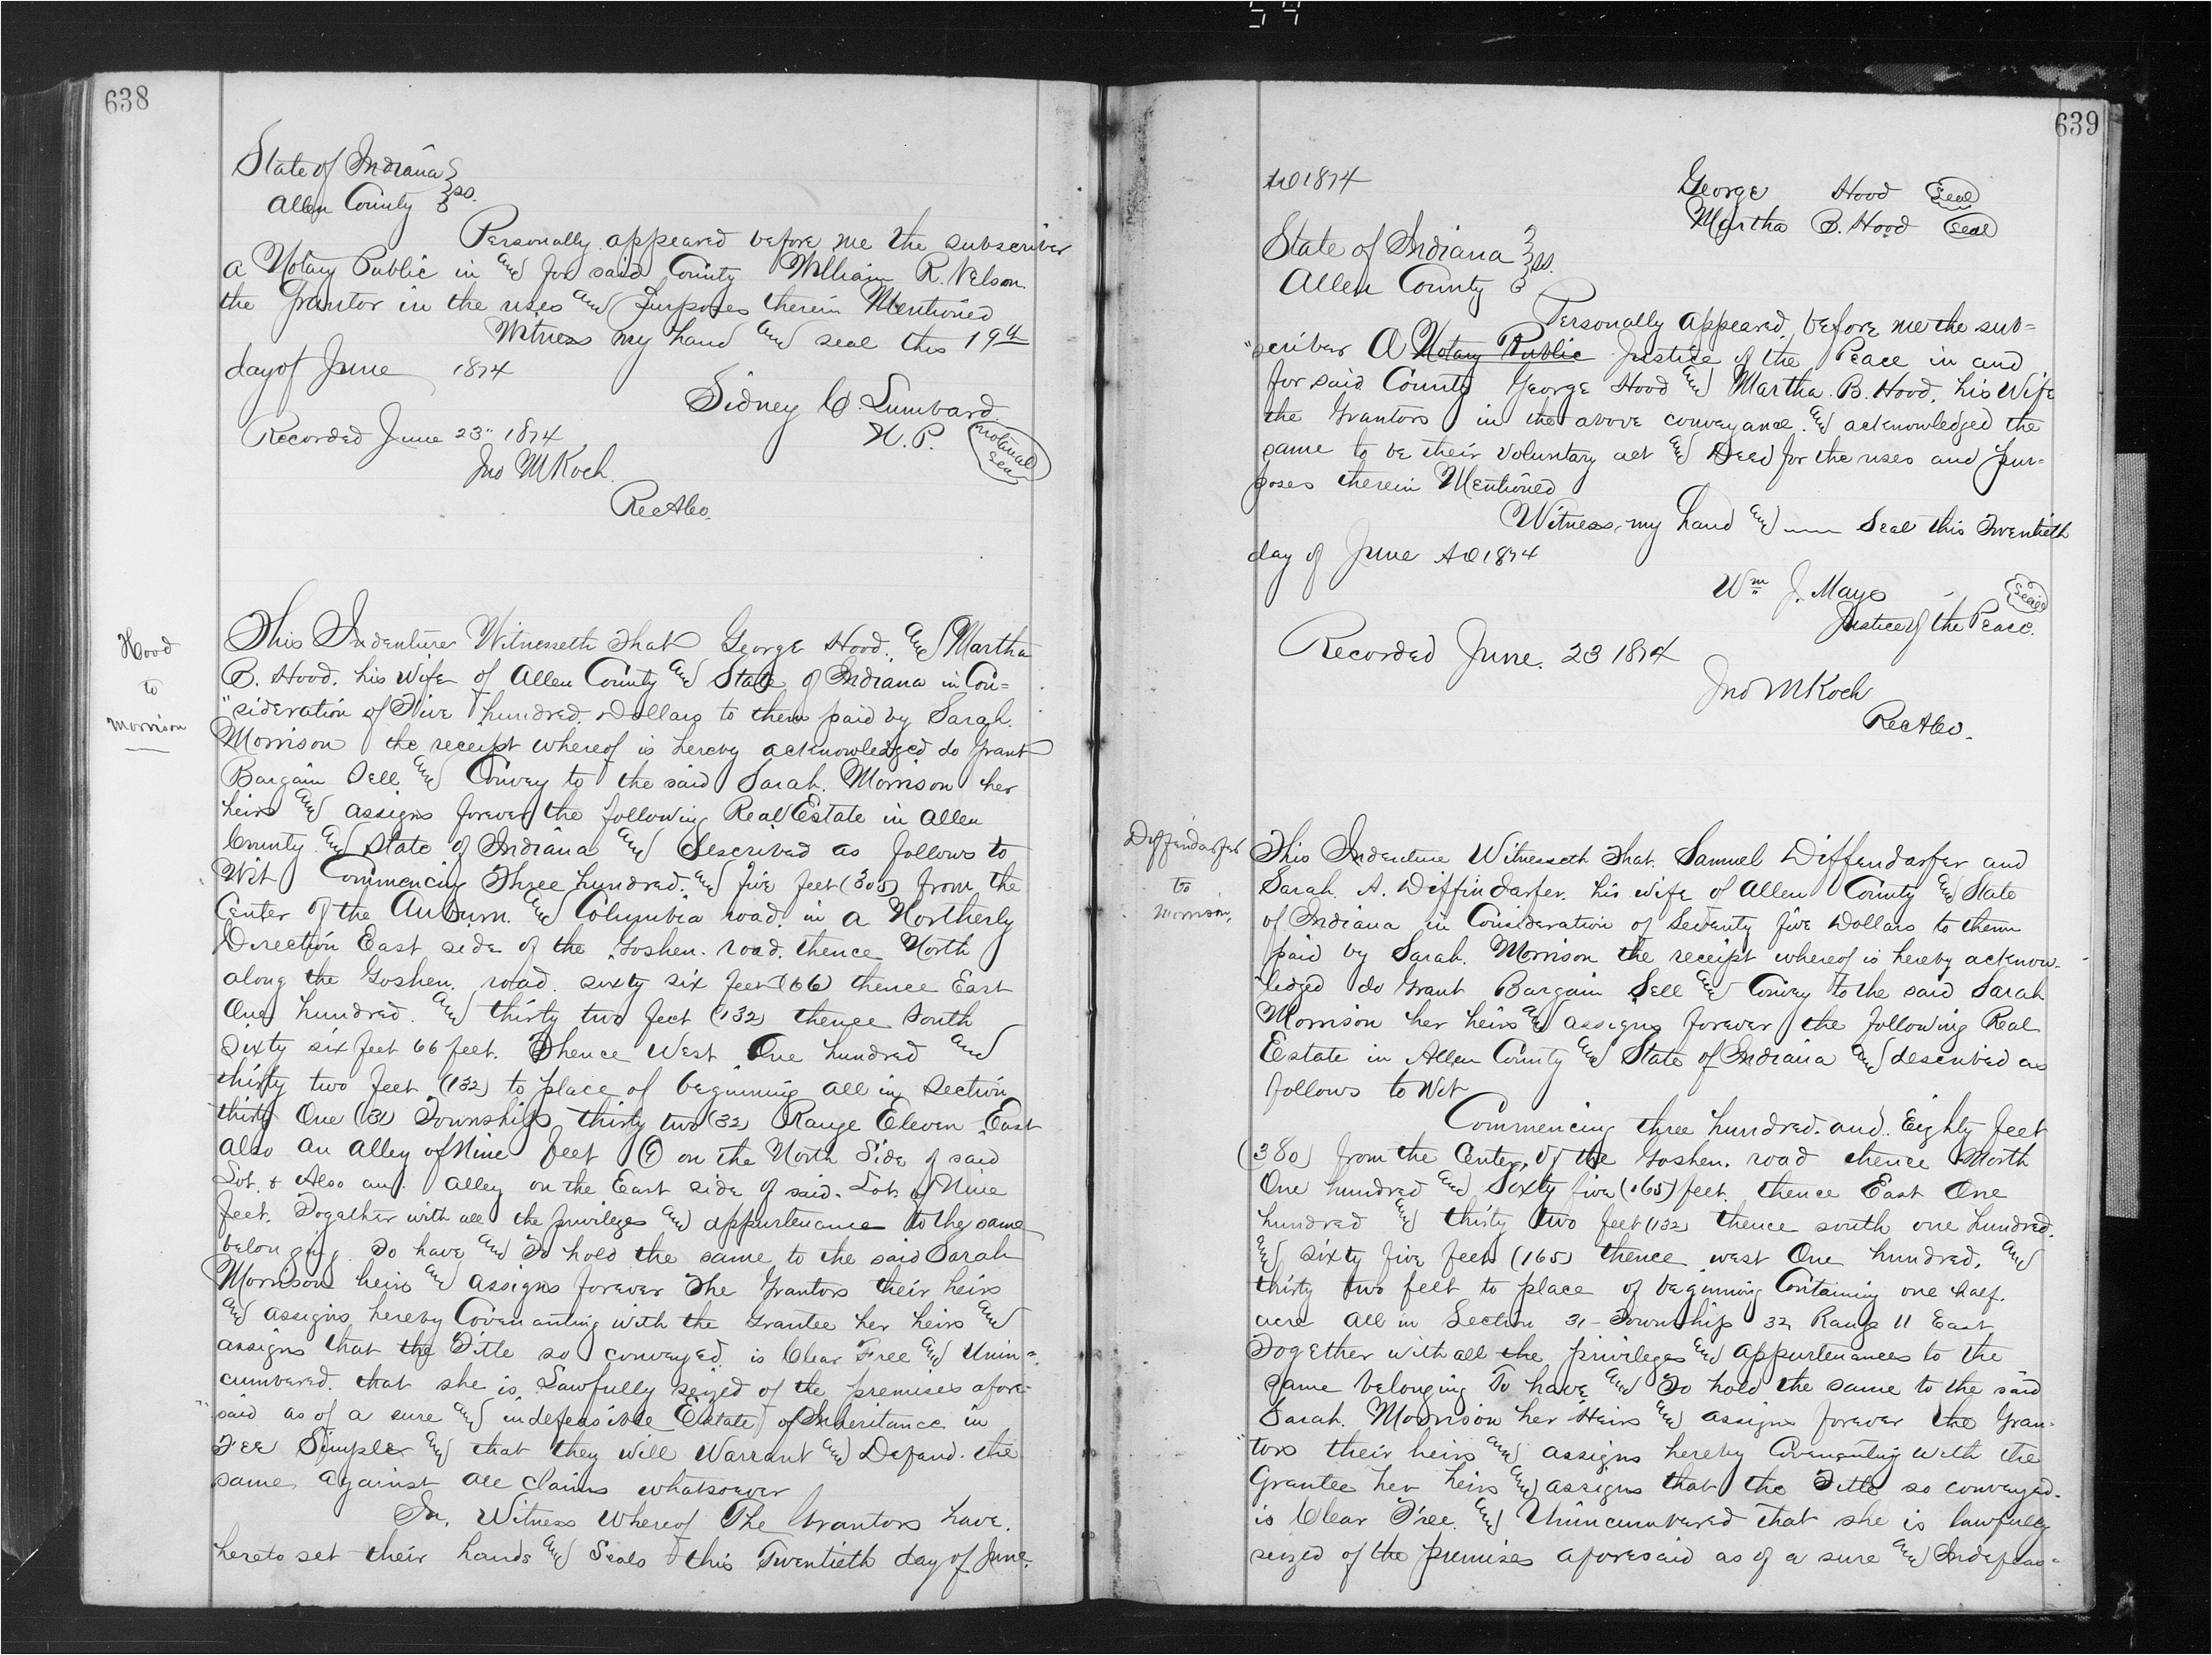 638
State of Indiana
Allen County ss.
Personally appeared before me the subscriber
a Notary Public in and for said County William R. Nelson
the Grantor in the uses and purposes therein Mentioned
Witness my hand and seal this 19th
day of June 1874
Sidney C. Lumbard
N. P. notarial seal
Recorded June 23" 1874
Jno M Koch
Rec A Co.
Hood
to
Morrison
This Indenture Witnesseth That George Hood. and Martha
B. Hood. his Wife of Allen County and State of Indiana in Con=
"sideration of Five hundred. Dollars to them paid by Sarah.
Morrison the receipt whereof is hereby acknowledged do Grant
Bargain Sell and Convey to the said Sarah. Morrison her
heirs and assigns forever the following Real Estate in Allen
County and State of Indiana and described as follows to
Wit Commencing Three hundred. and five feet (305) from the
Center of the Auburn. and Columbia road. in a Northerly
Direction East side of the Goshen. road. thence North
along the Goshen. road. sixty six feet (66) thence East
One hundred. and thirty two feet (132) thence South
Sixty six feet 66 feet. Thence West One hundred and
thirty two feet. (132) to place of beginning all in Section
thirty One (31) Township thirty two (32) Range Eleven East
also an alley of Nine feet (9) on the North Side of said
Lot. & Also an alley on the East side of said. Lot of Nine
feet. Togather with all the privileges and appurtenance to the same
belonging. To have and To hold the same to the said Sarah
Morrison heirs and assigns forever The Grantors their heirs
and assigns hereby Covenanting with the Grantee her heirs and
assigns that the Title so conveyed. is Clear Free and Unin=
cumbered. that she is Lawfully seized of the premises afore=
"said as of a sure and indefeasible Estate of Inheritance in
Fee Simple and that they will Warrant and Defend. the
same against all claims whatsoever
In. Witness Whereof The Grantors have.
hereto set their hands and Seals this Twentieth day of June.
639
AD 1874
George Hood Seal
Martha B. Hood Seal
State of Indiana
Allen County ss.
Personally appeared before me the sub=
"scriber A Notary Public Justice of the Peace in and
for said County George Hood and Martha. B. Hood. his Wife
the Grantors in the above conveyance. and acknowledged the
same to be their voluntary act and Deed for the uses and pur=
poses therein Mentioned
Witness my hand and —— Seal this Twentieth
day of June AD 1874
Wm J. Mayo Seal
Justice of the Peace.
Recorded June. 23 1874
Jno M Koch
Rec A Co.
Deffendarfer
to
Morrison.
This Indenture Witnesseth That. Samuel Diffendarfer and
Sarah A. Diffindarfer. his wife of Allen County and State
of Indiana in Consideration of Seventy five Dollars to them
paid by Sarah. Morrison the receipt whereof is hereby acknow-
"ledged do Grant Bargain Sell and Convey to the said Sarah
Morrison her heirs and assigns forever the following Real
Estate in Allen County and State of Indiana and described as
follows to Wit
Commencing three hundred. and. Eighty feet
(380) from the Center. of the Goshen. road thence North
One hundred and Sixty five (165) feet. thence East One
hundred and thirty two feet (132) thence south one hundred.
and sixty five feet (165) thence west One hundred. and
thirty two feet to place of beginning Containing one half.
acre all in Section 31- Township 32 Range 11 East
Together with all the privileges and appurtenances to the
same belonging To have and To hold the same to the said
Sarah. Morrison her Heirs and assigns forever the Gran-
"tors their heirs and assigns hereby Covenanting with the
Grantee her heirs and assigns that the Title so conveyed.
is Clear Free. and Unincumbered that she is lawfully
seized of the premises aforesaid as of a sure and Indefeas=